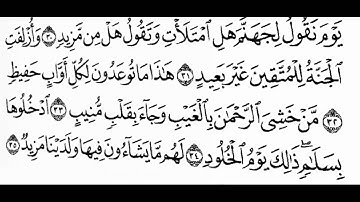 يَوْمَ نَقُولُ لِجَهَنَّمَ هَلِ ٱمْتَلَأْتِ وَتَقُولُ هَلْ مِن مَّزِيدٍ ٣٠ وَأُزْلِفَتِ
ٱلْجَنَّةُ لِلْمُتَّقِينَ غَيْرَ بَعِيدٍ ٣١ هَٰذَا مَا تُوعَدُونَ لِكُلِّ أَوَّابٍ حَفِيظٍ
٣٢ مَّنْ خَشِىَ ٱلرَّحْمَٰنَ بِٱلْغَيْبِ وَجَآءَ بِقَلْبٍ مُّنِيبٍ ٣٣ ٱدْخُلُوهَا
بِسَلَٰمٍ ۖ ذَٰلِكَ يَوْمُ ٱلْخُلُودِ ٣٤ لَهُم مَّا يَشَآءُونَ فِيهَا وَلَدَيْنَا مَزِيدٌ ٣٥